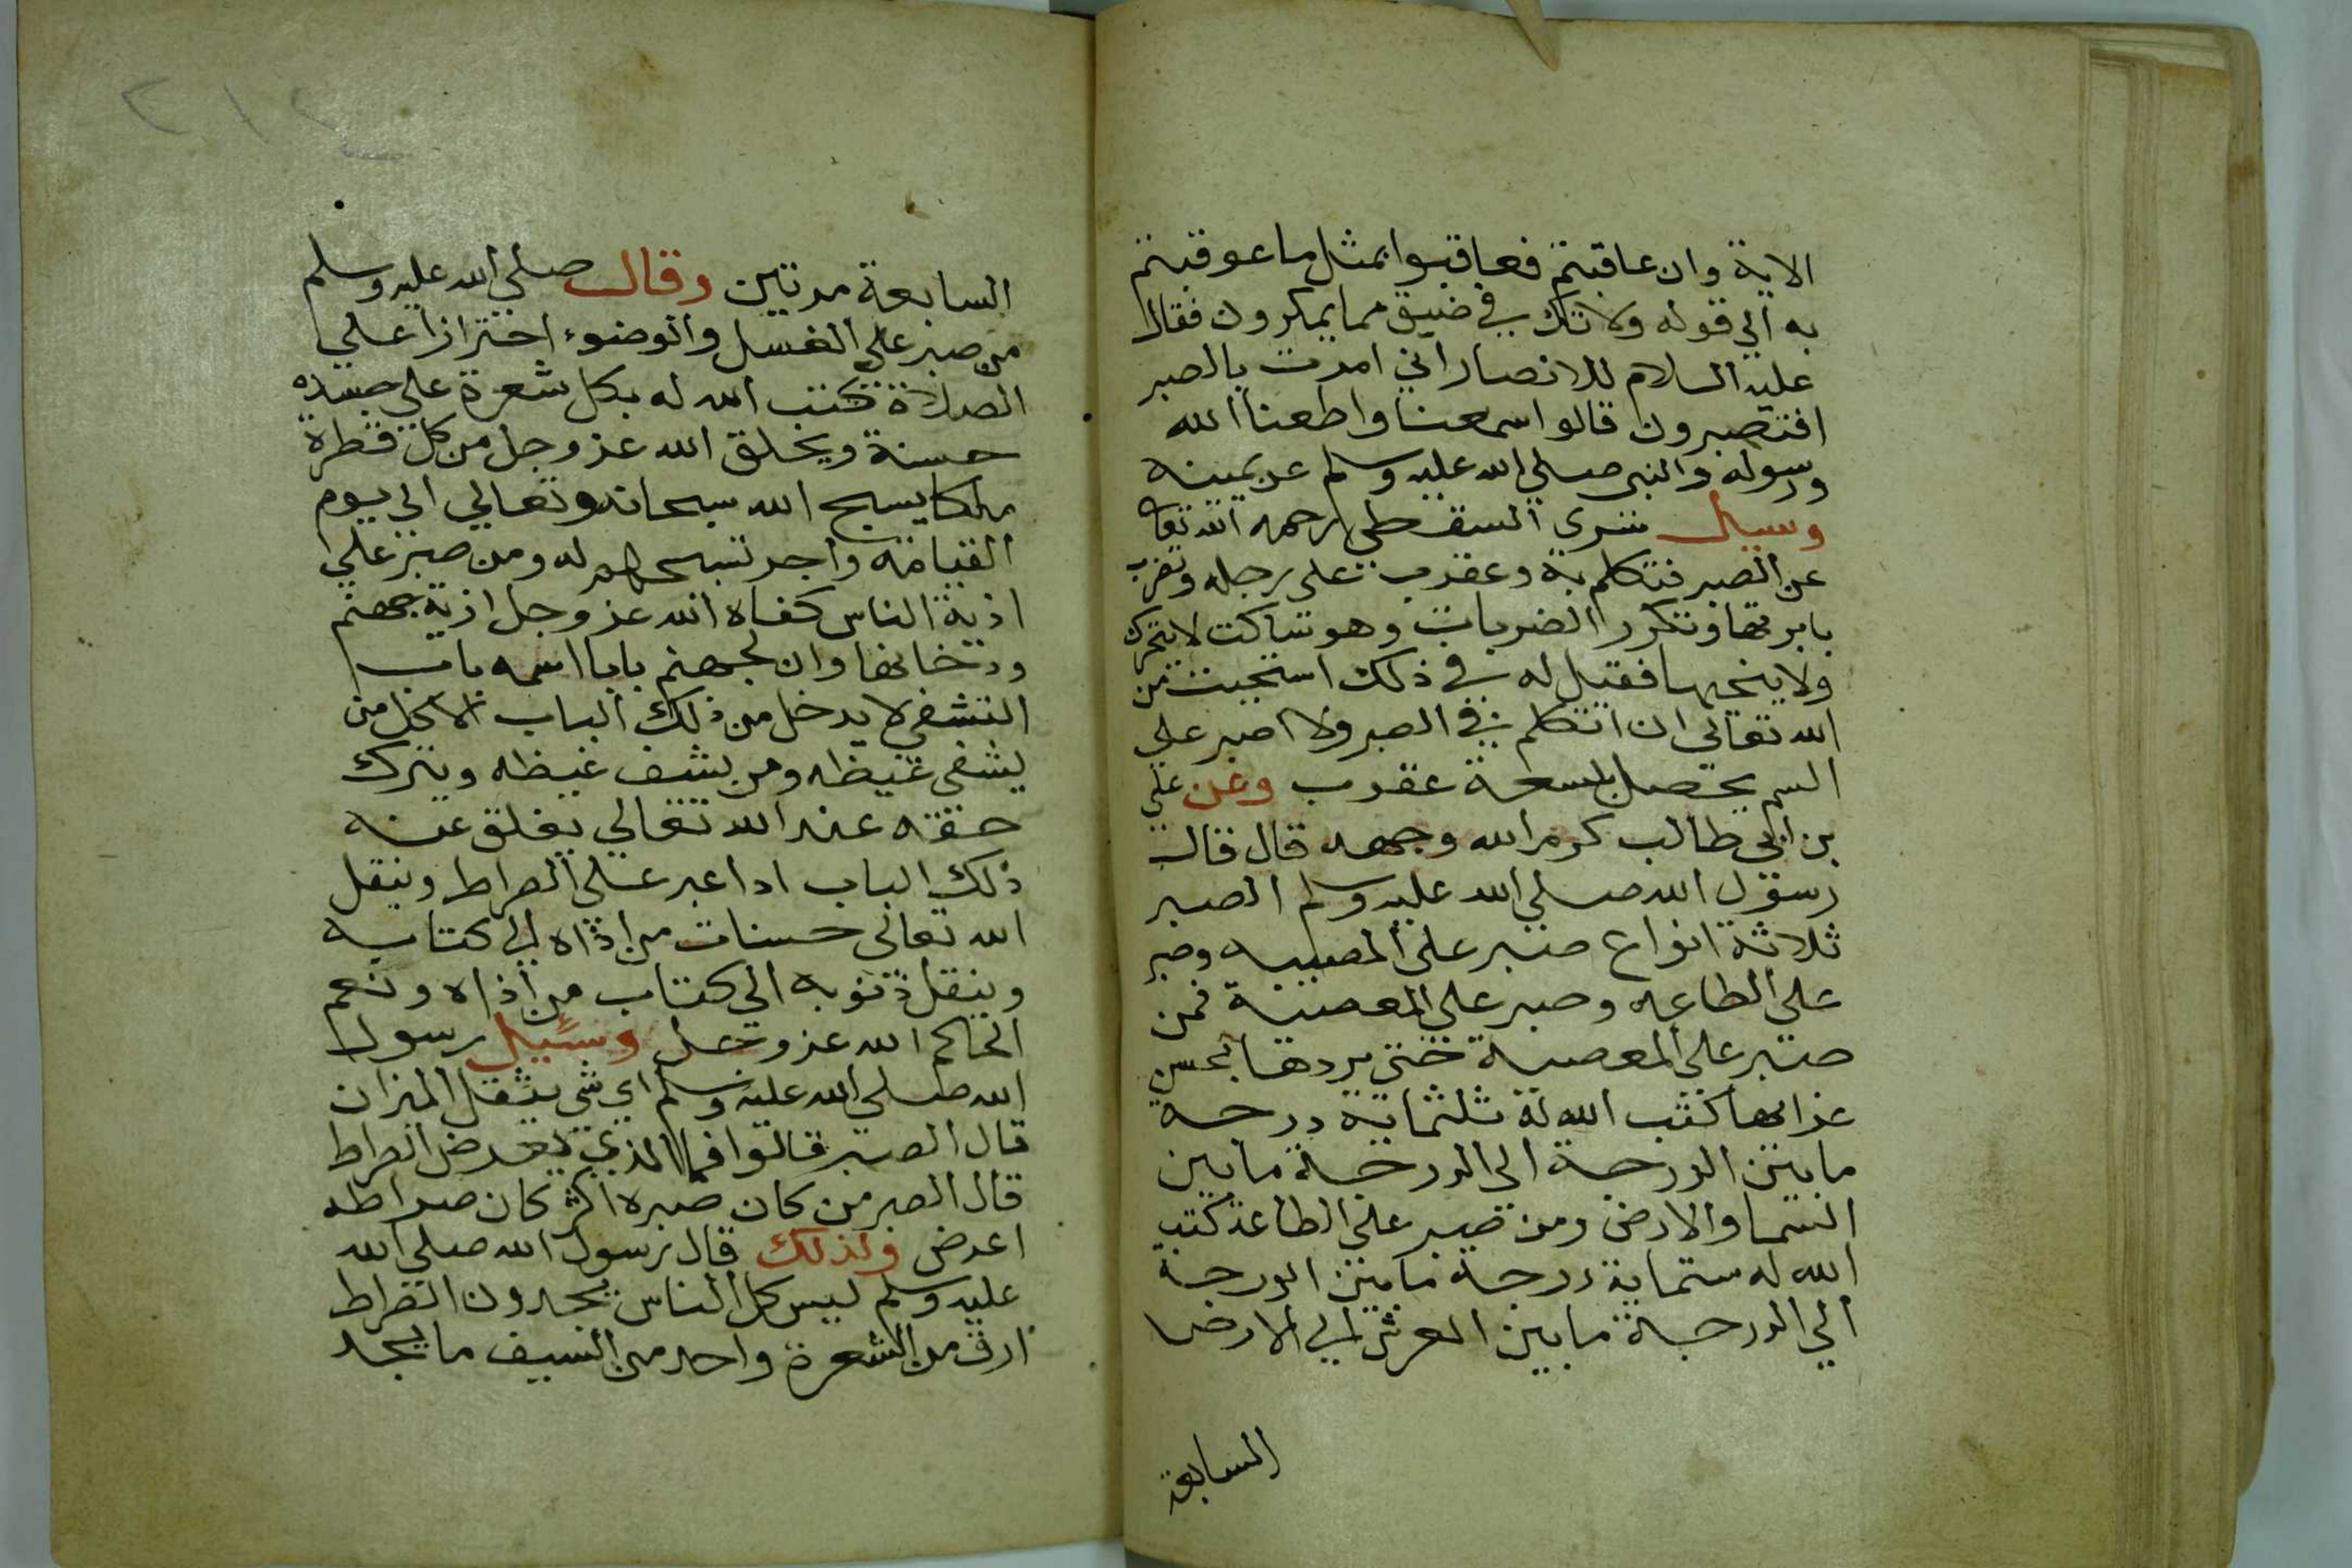 الاية وان عاقبتم فعاقبوا بمثل ما عوقبتم
به الي قوله ولا تك في ضيق مما يمكرون فقال
عليه السلام للانصار اني امرت بالصبر
افتصبرون قالوا سمعنا واطعنا الله
ورسوله والنبي صلي الله عليه وسلم عن يمينه
وسيل سري السقطي رحمه الله تعا
عن الصبر فتكلم به وعقرب على رجله وتضرب
بابرتها وتكرر الضربات وهو ساكت لا يتحرك
ولا ينحيها فقيل له في ذلك استحييت من
الله تعالي ان اتكلم في الصبر ولا اصبر علي
السم يحصل بلسعة عقرب وعن علي
بن ابي طالب كرم الله وجهه قال قال
رسول الله صلي الله عليه وسلم الصبر
ثلاثة انواع صبر علي المصيبه وصبر
علي الطاعه وصبر علي المعصية فمن
صبر على المعصية حتى يردها بحسن
عزايها كتب الله له ثلثماية درجة
مابين الدرجة الى الدرجة مابين
السما والارض ومن صبر علي الطاعة كتب
الله له ستماية درجة مابين الدرجة
الي الدرجة مابين العرش الي الارض
السابعة
السابعة مرتين وقال صلي الله عليه وسلم
من صبر علي الغسل والوضوء احترازا علي
الصلاة كتب الله له بكل شعرة علي جسده
حسنة ويخلق الله عز وجل من كل قطرة
ملكا يسبح الله سبحانه وتعالي الي يوم
القيامه واجر تسبيحهم له ومن صبر علي
اذية الناس كفاه الله عز وجل اذية جهنم
ودخانها وان لجهنم بابا اسمه باب
التشفي لا يدخل من ذلك الباب الا كل من
يشفى غيظه ومن يشف غيظه ويترك
حقه عند الله تعالي يغلق عنه
ذلك الباب اذا عبر علي الصراط وينقل
الله تعالى حسنات من اذاه الي كتابه
وينقل ذنوبه الي كتاب من اذاه ونعم
الحاكم الله عز وجل وسيل رسول
الله صلي الله عليه وسلم اي شي يثقل الميزان
قال الصبر قالوا فما الذي يعرض الصراط
قال الصبر من كان صبره اكثر كان صراطه
اعرض ولذلك قال رسول الله صلي الله
عليه وسلم ليس كل الناس يجدون الصراط
ارق من الشعرة واحد من السيف ما يجد